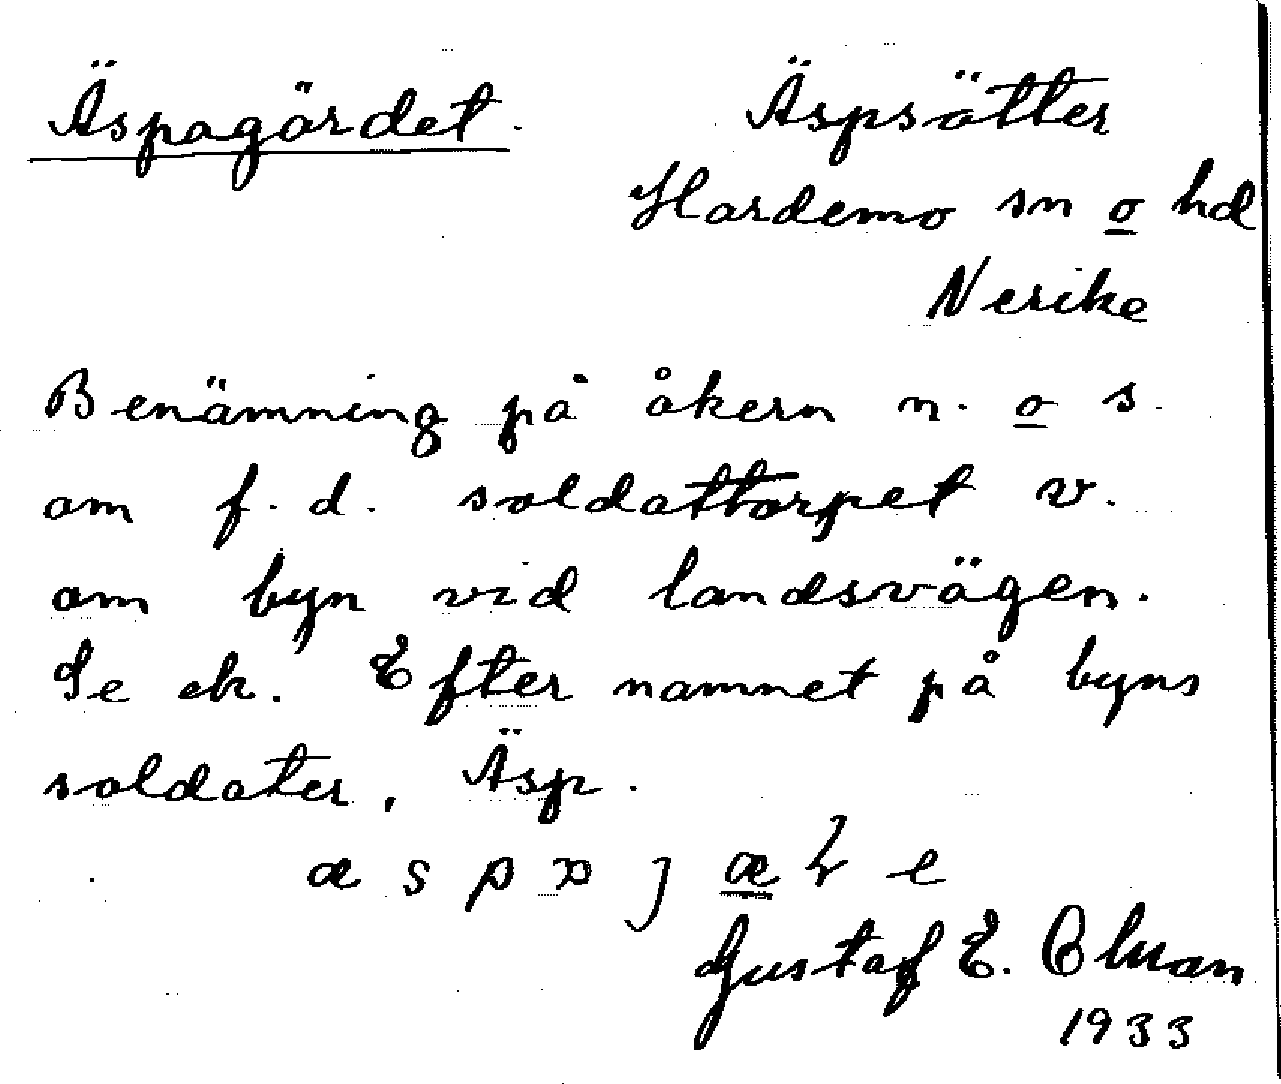 Äspagärdet.
Äspsätter
Hardemo sn o hd
Nerike
Benämning på åkern n. o s.
om f.d. soldattorpet v.
om byn vid landsvägen.
Se ek. Efter namnet på byns
soldater, Äsp.
Gustaf E.
1933